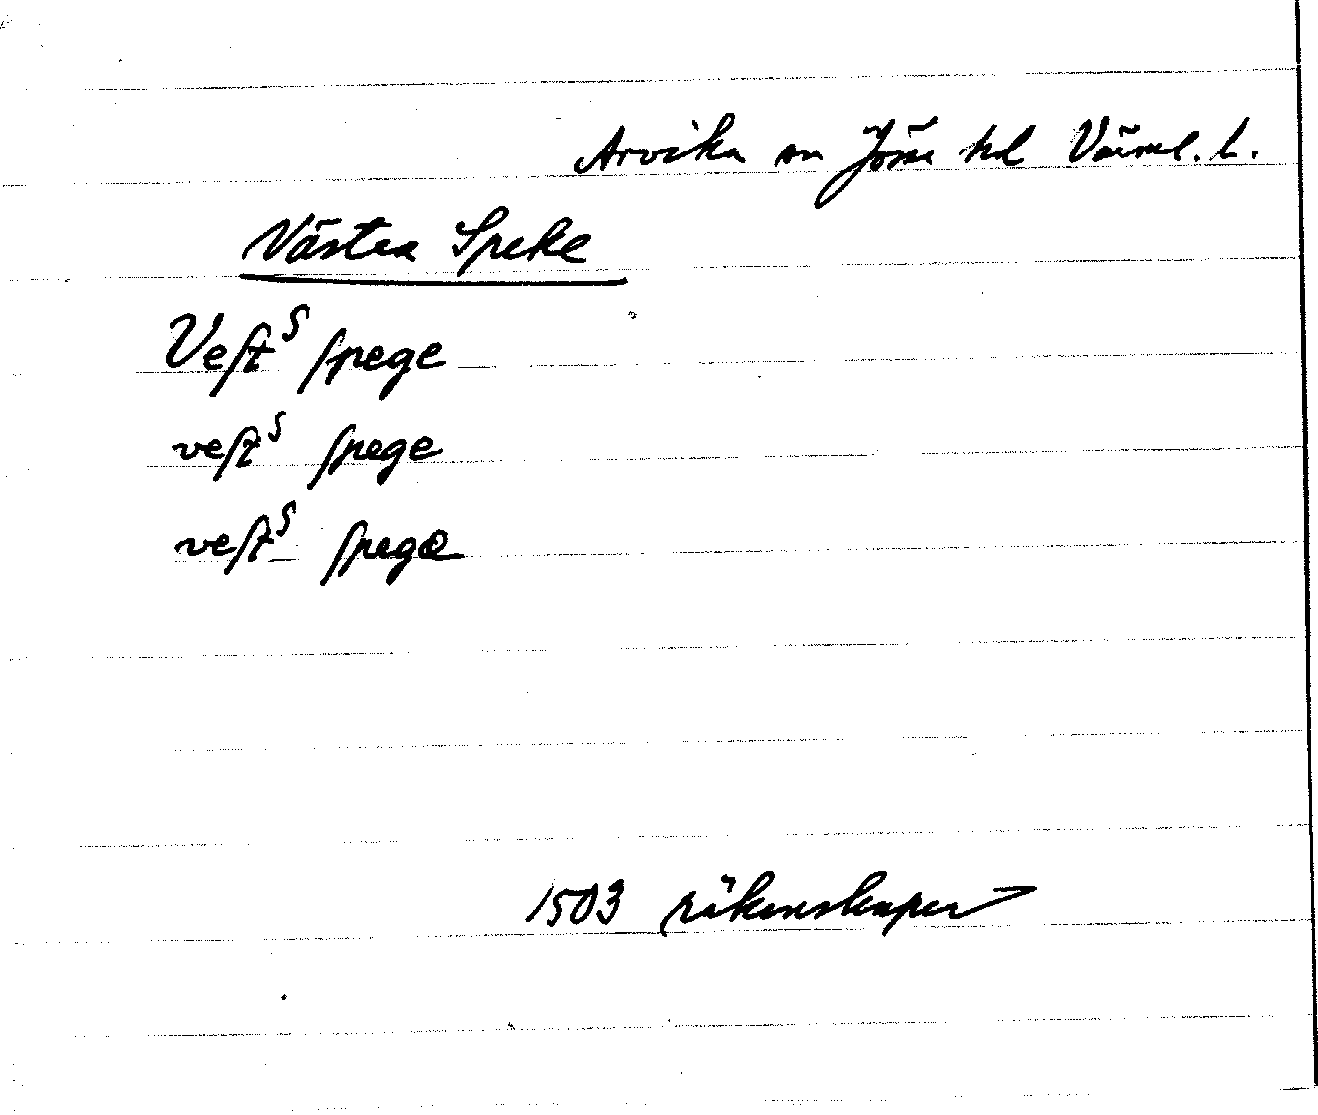 Arvika sn Jösse hd Värml. L.
Västra Speke
Veſtˢ ſpege
veſtˢ ſpege
veſtˢ ſpege
1503 räkenskaper